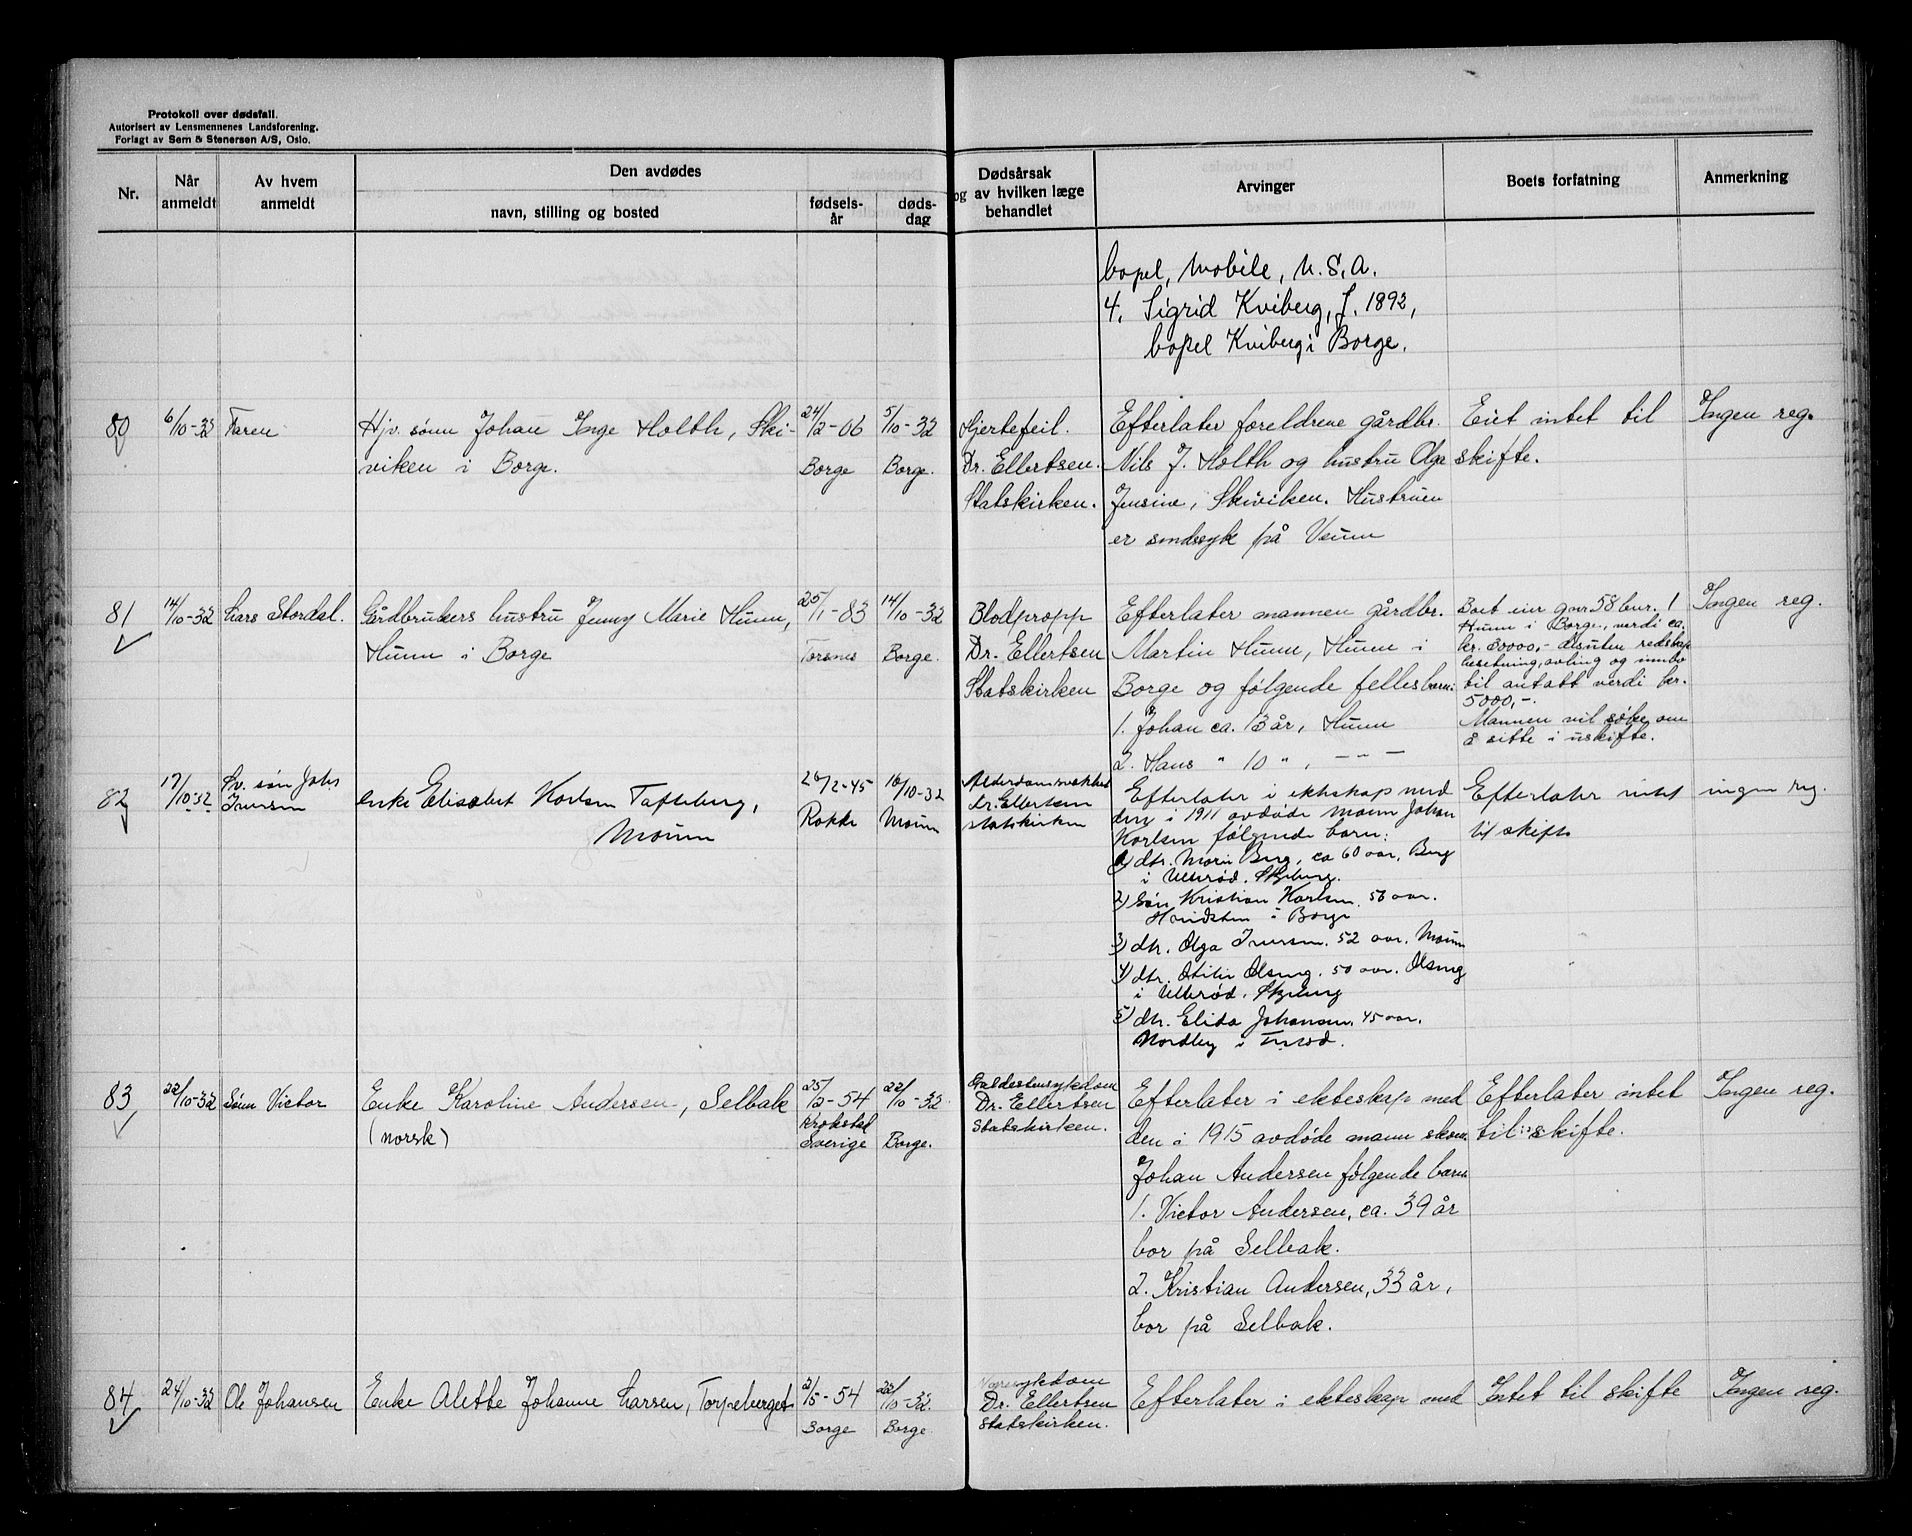 Protokoll over dødsfall.
Autorisert av Lensmennenes Landsforening.
Forlagt av Sem & Stenersen A/S, Oslo.
Nr.
Når anmeldt
Av hvem anmeldt
Den avdødes
navn, stilling og bosted
fødsels-år
døds-dag
Dødsårsak
og av hvilken læge
behandlet
Arvinger
Boets forfatning
Anmerkning
bopel, Mobile, U.S.A.
4. Sigrid Kviberg, f. 1892,
bopel Kviberg i Borge.
80
6/10-32
Faren
Hjv. sønn Johan Inge Holth, Ski-
viken i Borge.
24/2-06
Borge
5/10-32
Borge.
Hjertefeil.
Dr. Ellertsen.
Statskirken.
Efterlater foreldrene gårdbr.
Nils J. Holth og hustru Olga
Jensine, Skiviken. Hustruen
er sindssyk på Veum
Eiet intet til
skifte.
Ingen reg.
81
14/10-32
Lars Stordal.
Gårdbrukers hustru Jenny Marie Hunn,
Hunn i Borge
25/1-83
Torsnes
14/10-32
Borge.
Blodpropp
Dr. Ellertsen
Statskirken
Efterlater mannen gårdbr.
Martin Hunn, Hunn i
Borge og følgende fellesbarn:
1. Johan ca. 13 år, Hunn
2. Hans " 10 " , - " -
Boet eier gnr 58 bnr. 1
Hunn i Borge, verdi ca.
kr. 30000,- desuten redskap
besetning, avling og innbo
til antatt verdi kr.
5000,-.
Mannen vil søke om
å sitte i uskifte.
Ingen reg.
82
17/10-32
Sv. søn Johs
Iversen
enke Elisabet Karlsen Tafteberg,
Moum
26/2-45
Rokke
16/10-32
Moum
Alderdomssvakhet
dr. Ellertsen
statskirken
Efterlater i ekteskap med
den i 1911 avdøde mann Johan
Karlsen følgende barn:
1) dtr. Marie Berg, ca 60 aar, Berg
i Ullerød. Skjeberg.
2) søn Kristian Karlsen. 56 aar.
i Borge
3) dtr. Olga Iversen. 52 aar. Moum
4) dtr. Otilie Olseng. 50 aar. Olseng
i Ullerød. Skjeberg
5) dtr. Elida Johansen. 45 aar.
Nordby i
Efterlater intet
til skifte
ingen reg.
83
22/10-32
Sønn Victor
Enke Karoline Andersen, Selbak
(norsk)
-54
Krokstad
Sverige
22/10-32
Borge.
Galdestensykdom
Dr. Ellertsen
Statskirken.
Efterlater i ekteskap med
den i 1915 avdøde mann skom.
Johan Andersen følgende barn
1. Victor Andersen, ca. 39 år
bor på Selbak.
2. Kristian Andersen, 33 år,
bor på Selbak.
Efterlater intet
til skifte.
Ingen reg.
84
24/10-32
Ole Johansen
Enke Alette Johanne Larsen, Torpeberget
2/5-54
Borge
22/10-32.
Borge
Dr. Ellertsen
Statskirken.
Efterlater i ekteskap med
Intet til skifte
Ingen reg.